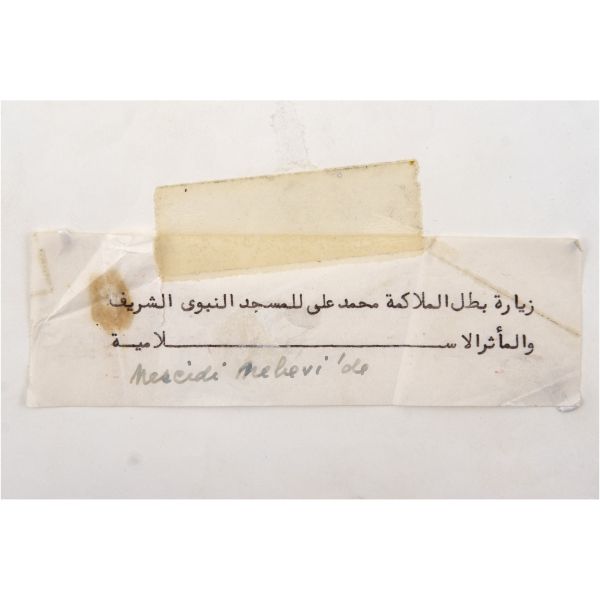 زيارة بطل الملاكمة محمد على للمسجد النبوى الشريف
والمأثر الاســـــــــــــــــــلامية
Mescidi Nebevi'de